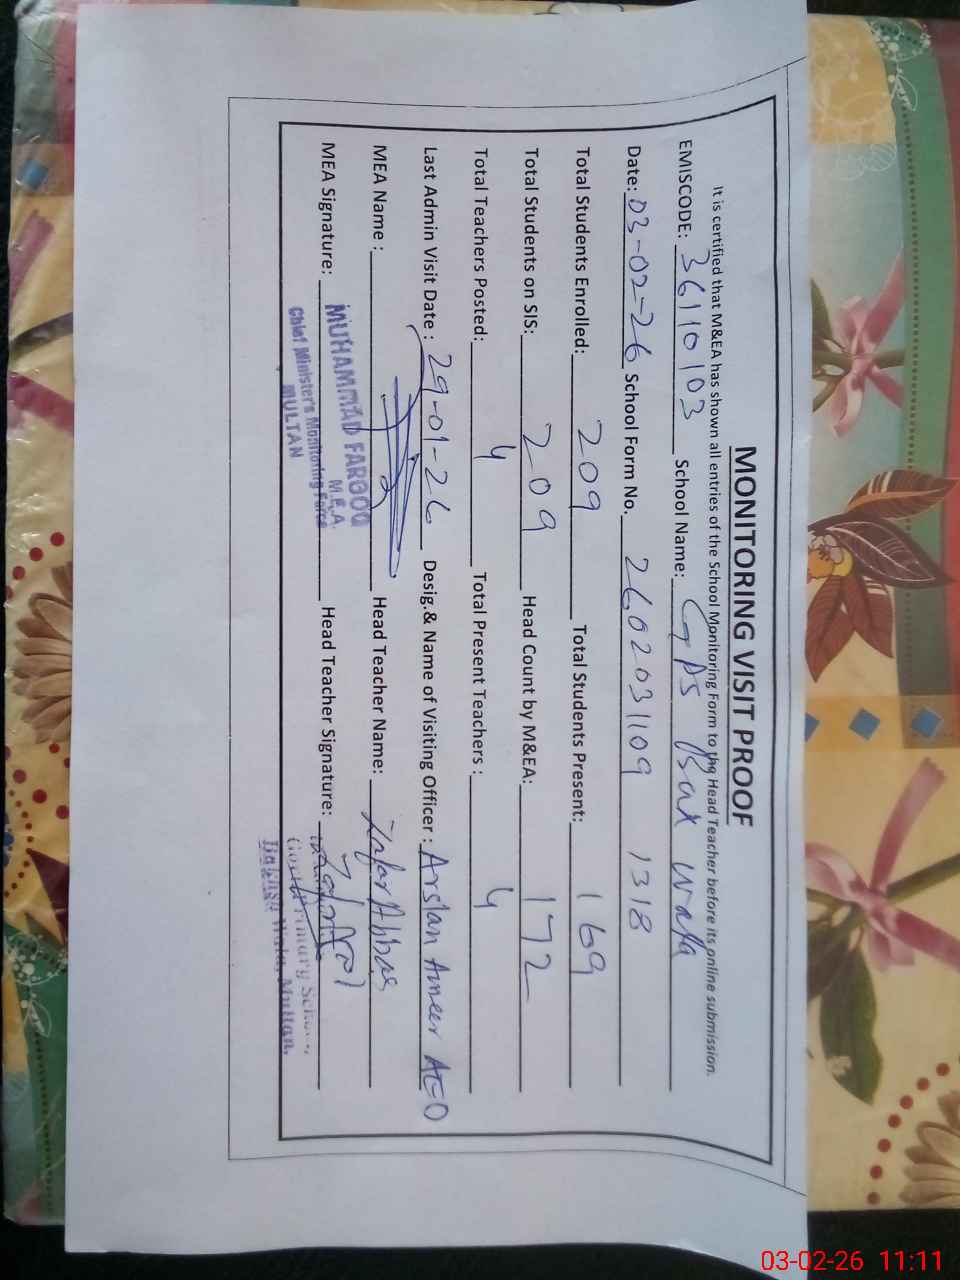 MONITORING VISIT PROOF
It is certified that M&EA has shown all entries of the School Monitoring Form to the Head Teacher before its online submission.
EMISCODE: 36110103 School Name: GPS Bax wala
Date: 03-02-26 School Form No. 2602031109 1318
Total Students Enrolled: 209 Total Students Present: 169
Total Students on SIS: 209 Head Count by M&EA: 172
Total Teachers Posted: 4 Total Present Teachers : 4
Last Admin Visit Date : 29-01-26 Desig.& Name of Visiting Officer : Arslan Ameer AEO
MEA Name : Head Teacher Name: Zafar Abbas
MEA Signature: Head Teacher Signature:
MUHAMMAD FAROOQ
M.E.A.
Chief Minister's Monitoring Force
MULTAN
Govt. Primary School,
Wala, Multan.
03-02-26 11:11